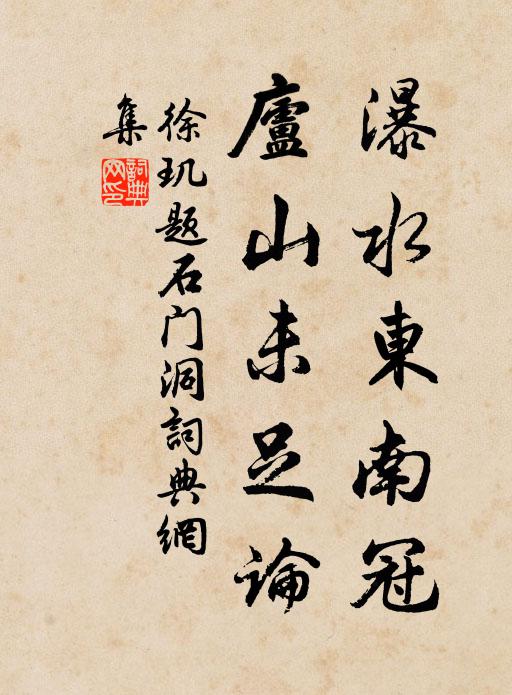 瀑水東南冠
廬山未足論
徐玑题石门洞詞典網
集
詞典
网印